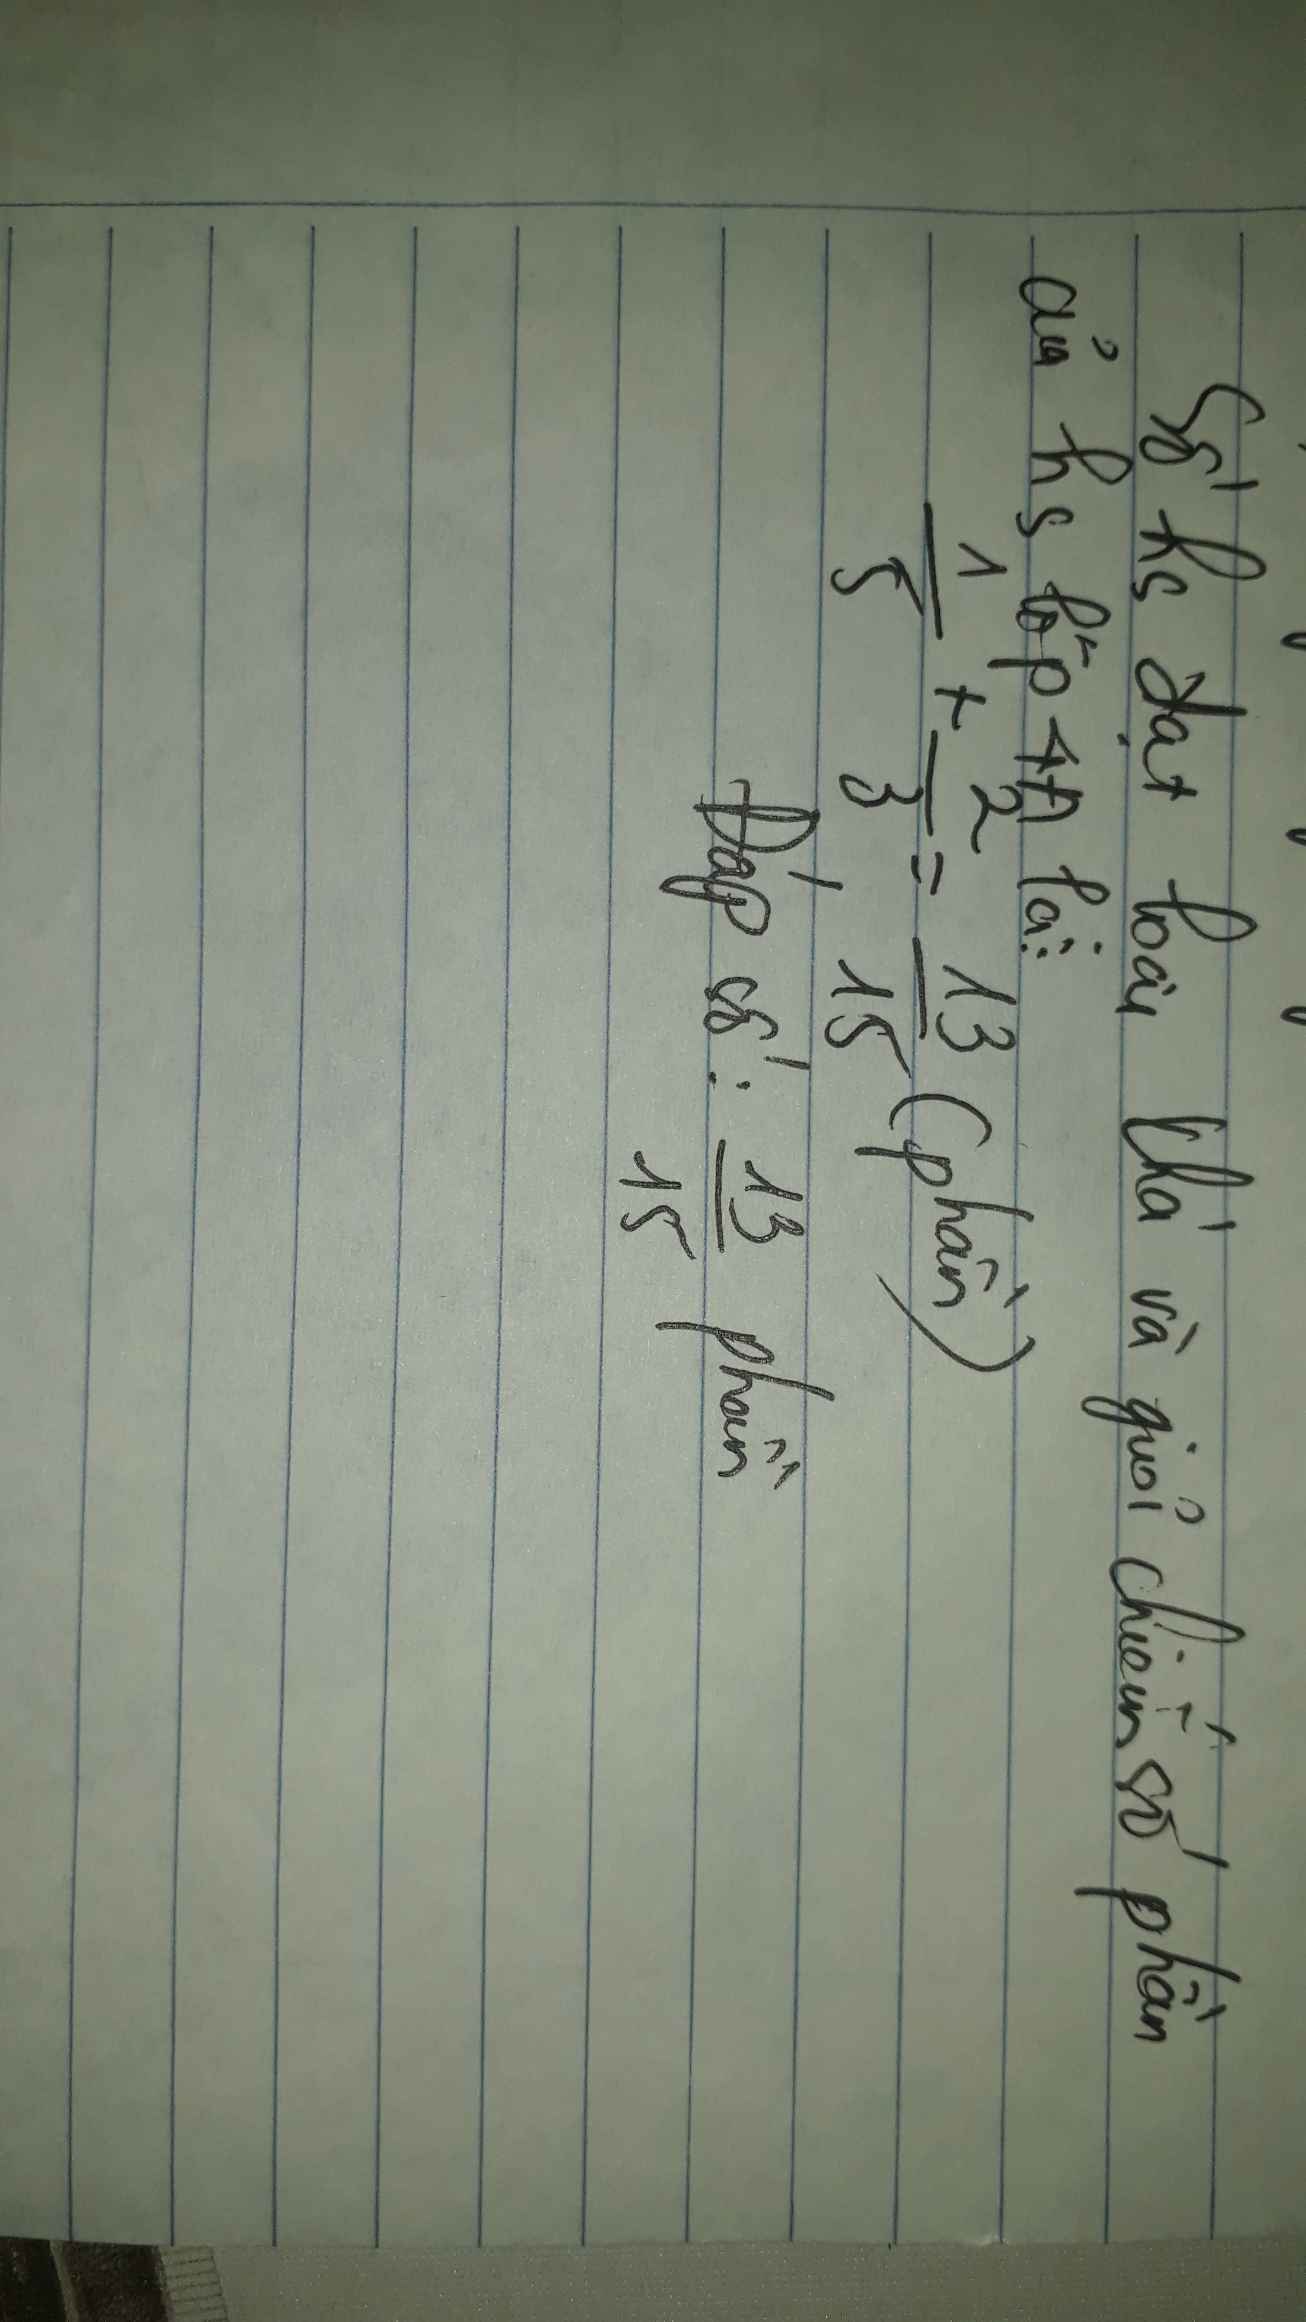 Số hs đạt loại khá và giỏi chiếm số phần
của hs lớp 4A là:
1/5 + 2/3 = 13/15 (phần)
Đáp số: 13/15 phần